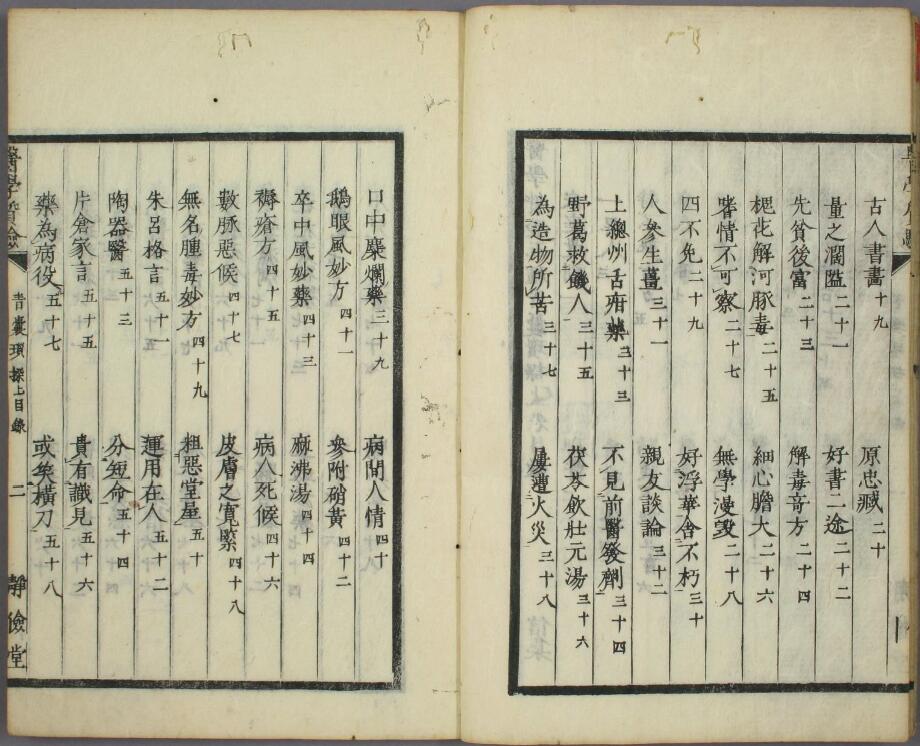 古人書畵 十九　原忠臧 二十
量之濶隘 二十一　好書二途 二十二
先貧後富 二十三　解毒奇方 二十四
梔花解河豚毒 二十五　細心膽大 二十六
嗜情不可察 二十七　無學漫毀 二十八
四不免 二十九　好浮華舍不朽 三十
人參生薑 三十一　親友談論 三十二
上總州舌府藥 三十三　不見前醫發劑 三十四
野葛救饑人 三十五　茯苓飲壯元湯 三十六
為造物所苦 三十七　屢遭火災 三十八
口中糜爛藥 三十九　病間人情 四十
鵝眼風妙方 四十一　參附硝黃 四十二
卒中風妙藥 四十三　麻沸湯 四十四
褥瘡方 四十五　病人死候 四十六
數脉惡候 四十七　皮膚之寬緊 四十八
無名腫毒妙方 四十九　粗惡堂星 五十
朱呂格言 五十一　運用在人 五十二
陶器醫 五十三　分短命 五十四
片倉家言 五十五　貴有識見 五十六
藥為病役 五十七　或矣橫刀 五十八
醫學質驗　青囊瑣探上目錄　二　靜儉堂